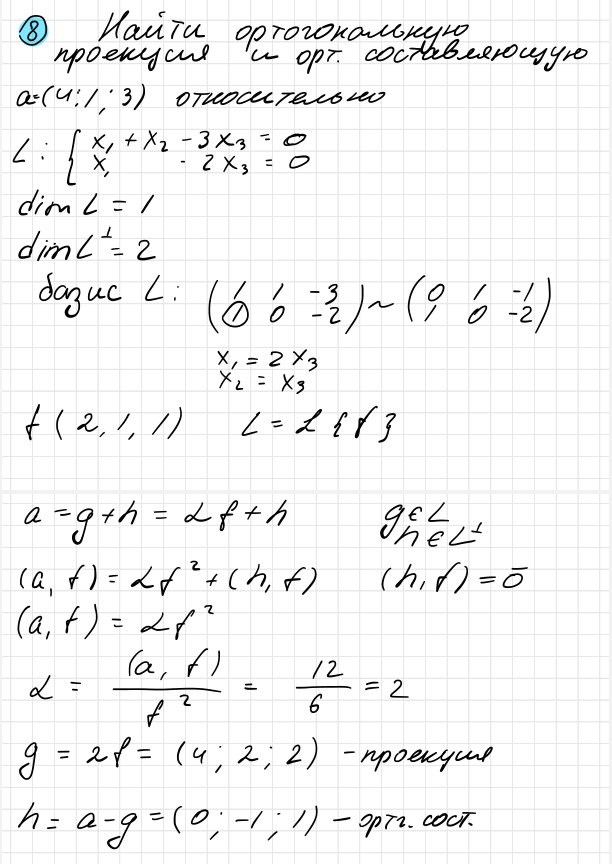 8 Найти ортогональную
проекция и орт. составляющую
a=(4;1;3) относительно
L: { x₁ + x₂ - 3x₃ = 0
x₁ - 2x₃ = 0
dim L = 1
dim L^⊥ = 2
базис L: (1 1 -3 ~ (0 1 -1
1 0 -2) 1 0 -2)
x₁ = 2x₃
x₂ = x₃
f(2,1,1) L = L{f}
a = g + h = αf + h g∈L
h∈L^⊥
(a, f) = αf² + (h, f) (h, f) = ō
(a, f) = αf²
α = (a, f) / f² = 12 / 6 = 2
g = 2f = (4; 2; 2) - проекция
h = a-g = (0; -1; 1) - ортг. сост.